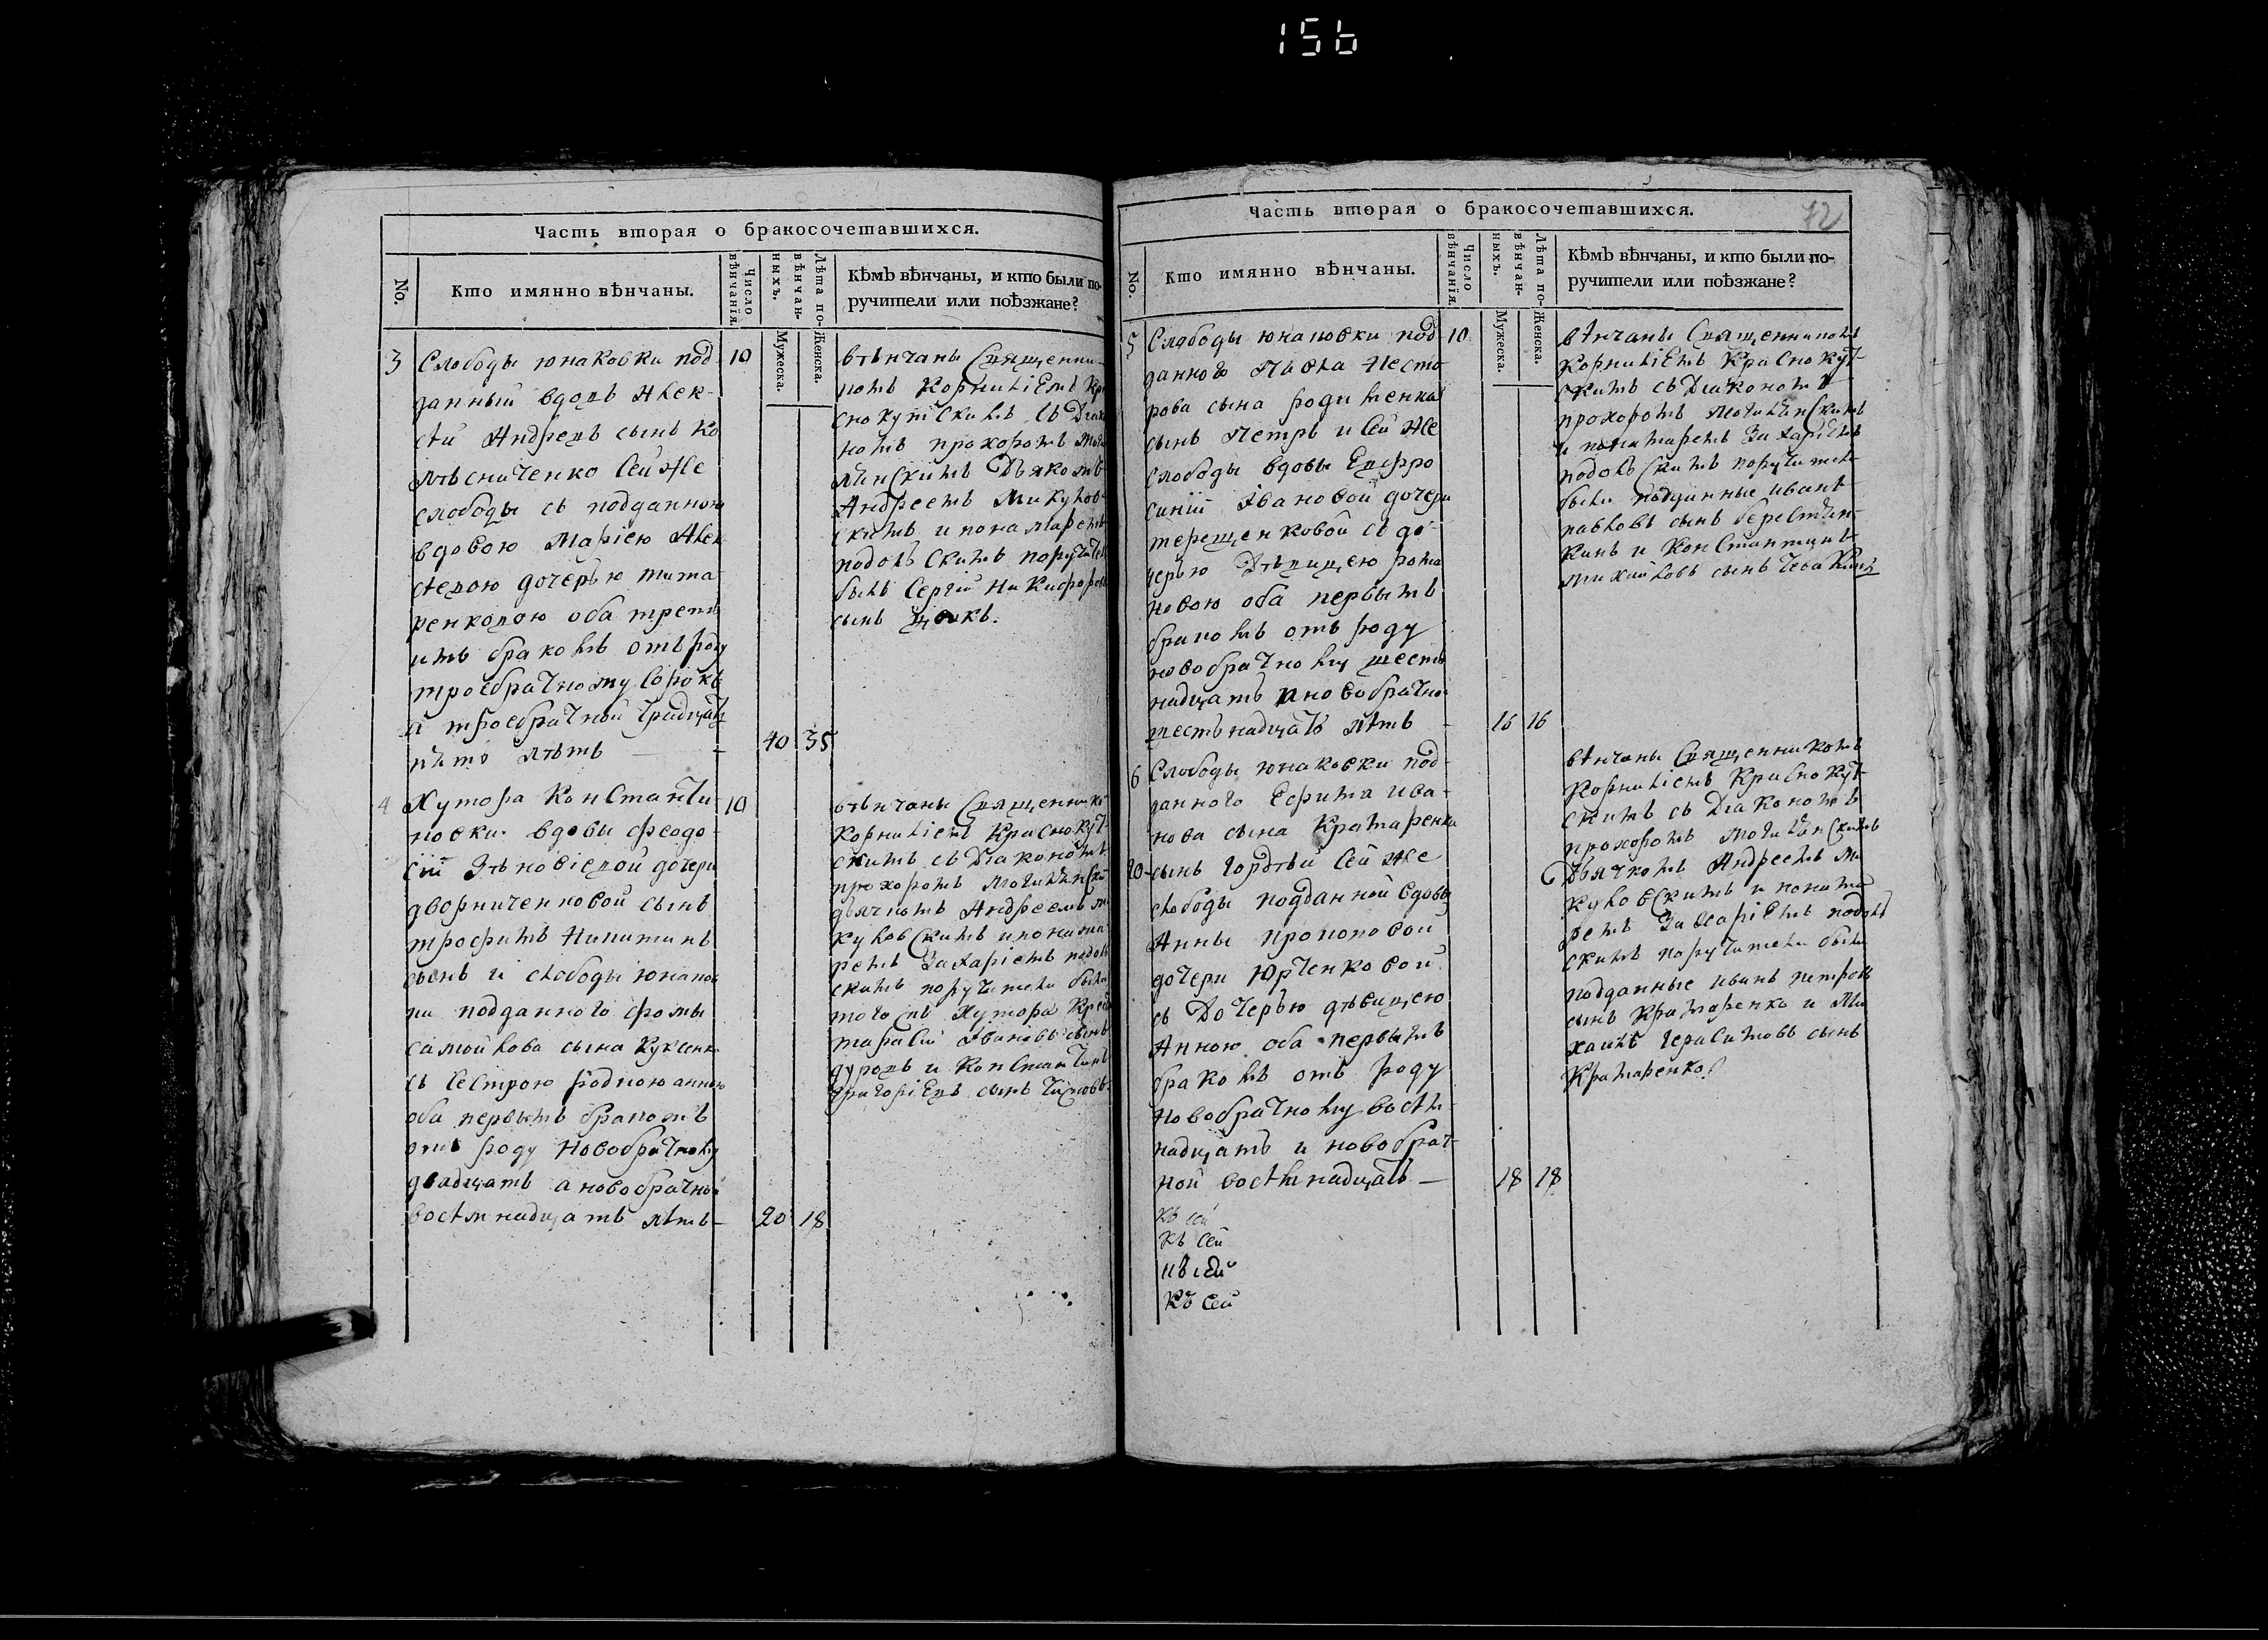 156
Часть вторая о бракосочетавшихся.
No.
Кто имянно вѣнчаны.
Число вѣнчанїя.
Лѣта по-
вѣнчан-
ныхъ.
Мужеска.
Женска.
Кѣмъ вѣнчаны, и кто были по-
ручители или поѣзжане?
3 Слободы юнаковки под- 10
данный вдовъ Алек-
сѣй Андреевъ сынъ Ко
лѣсниченко сей же
слободы съ подданною
вдовою Марїею Алек
сѣевою дочерью тита
ренковою оба трет
имъ бракомъ отъ роду
троебрачному сорокъ
а троебрачной тридцать
пять лѣтъ — 40 35
вѣнчаны Священни-
комъ Корнилїемъ Кра
снокутскимъ съ Дїако
номъ прохоромъ Моги
лѣнскимъ Дьякомъ
Андреемъ Микулов-
скимъ и понамаремъ
подольскимъ поручител
былъ Сергїй Никифоровъ
сынъ
4 Хутора Константи 10
новки вдовы феодо-
сїи дочери
дворниченковой сынъ
трофимъ Никитинъ
сынъ и слободы юнаков
ки подданного фомы
самойлова сына
съ сестрою родною анною
оба первымъ бракомъ
отъ роду новобрачному
двадцать а новобрачной
восемнадцать лѣтъ — 20 18
вѣнчаны Священникъ
Корнилїемъ Краснокут-
скимъ съ Дїакономъ
прохоромъ Могилѣнски
дьячкомъ Андреемъ ми
куловскимъ и понама
ремъ Захарїемъ подоль
скимъ поручители были
того
Ивановъ сынъ
и Константинъ
григорїевъ сынъ
Часть вторая о бракосочетавшихся. 72
No.
Кто имянно вѣнчаны.
Число вѣнчанїя.
Лѣта по-
вѣнчан-
ныхъ.
Мужеска.
Женска.
Кѣмъ вѣнчаны, и кто были по-
ручители или поѣзжане?
5 Слободы юнаковки под 10
данного Павла Несто
рова сына родименка
сынъ Петръ и сей же
слободы вдовы Евфро
синїи Ивановой дочери
терещенковой съ до-
черью Дѣвицею рома
новою оба первымъ
бракомъ отъ роду
новобрачному шест
надцать а новобрачно
шестьнадцать лѣтъ — 16 16
вѣнчаны Священникомъ
Корнилїемъ Краснокут-
скимъ съ Дїакономъ
прохоромъ Могилѣнскимъ
и понамаремъ Захарїемъ
подольскимъ поручители
были подданные иванъ
павловъ сынъ
и Константинъ
михайловъ сынъ
6 Слободы юнаковки под-
данного Ефима ива-
нова сына Крамаренка
20 сынъ гордѣй сей же
слободы подданной вдовы
Анны прокоповой
дочери Юрченковой
съ Дочерью дѣвицею
Анною оба первымъ
бракомъ отъ роду
новобрачному восем-
надцать и новобрач-
ной восемнадцать — 18 18
вѣнчаны Священникомъ
Корнилїемъ Краснокут-
скимъ съ Дїакономъ
прохоромъ Могилѣнскимъ
Дьячкомъ Андреемъ Ми
куловскимъ и понама
ремъ Захарїемъ подоль
скимъ поручители были
подданные иванъ петровъ
сынъ Крамаренко и Ми
хаилъ герасимовъ сынъ
Крамаренко
къ сей
къ сей
къ сей
къ сей